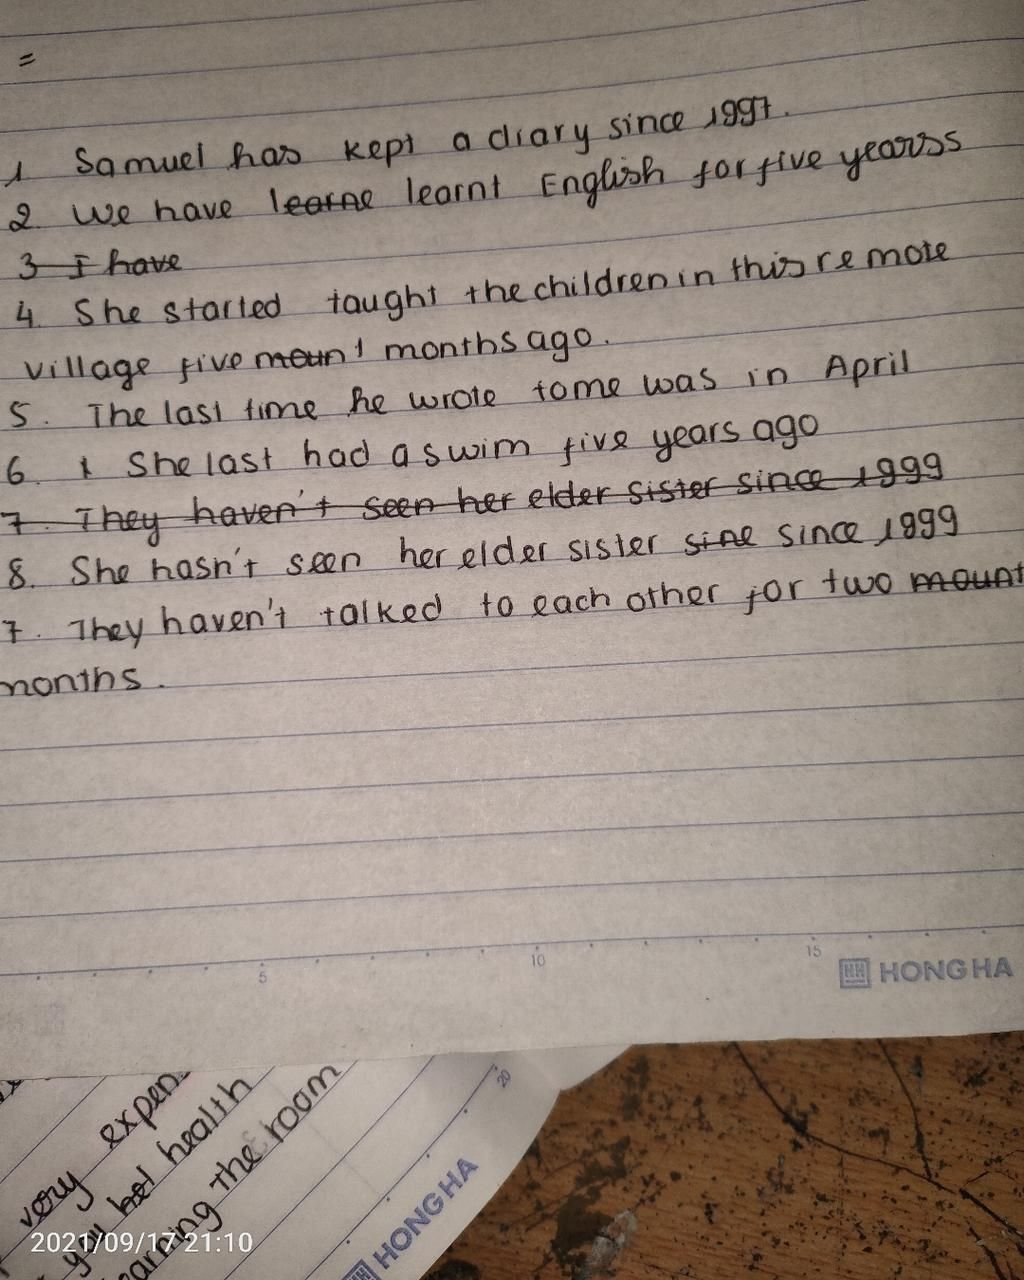 =
1 Samuel has kept a diary since 1997.
2. We have learne learnt English for five yearss
3 I have
4. She started taught the children in this remote
village five mount months ago.
5. The last time he wrote to me was in April
6. I She last had a swim five years ago
7. They haven't seen her elder sister since 1999
8. She hasn't seen her elder sister sine since 1999
7. They haven't talked to each other for two mount
months.
5 10 15
HH HONG HA
very expen
you hel health
eaning the room
20
HONG HA
2021/09/17 21:10